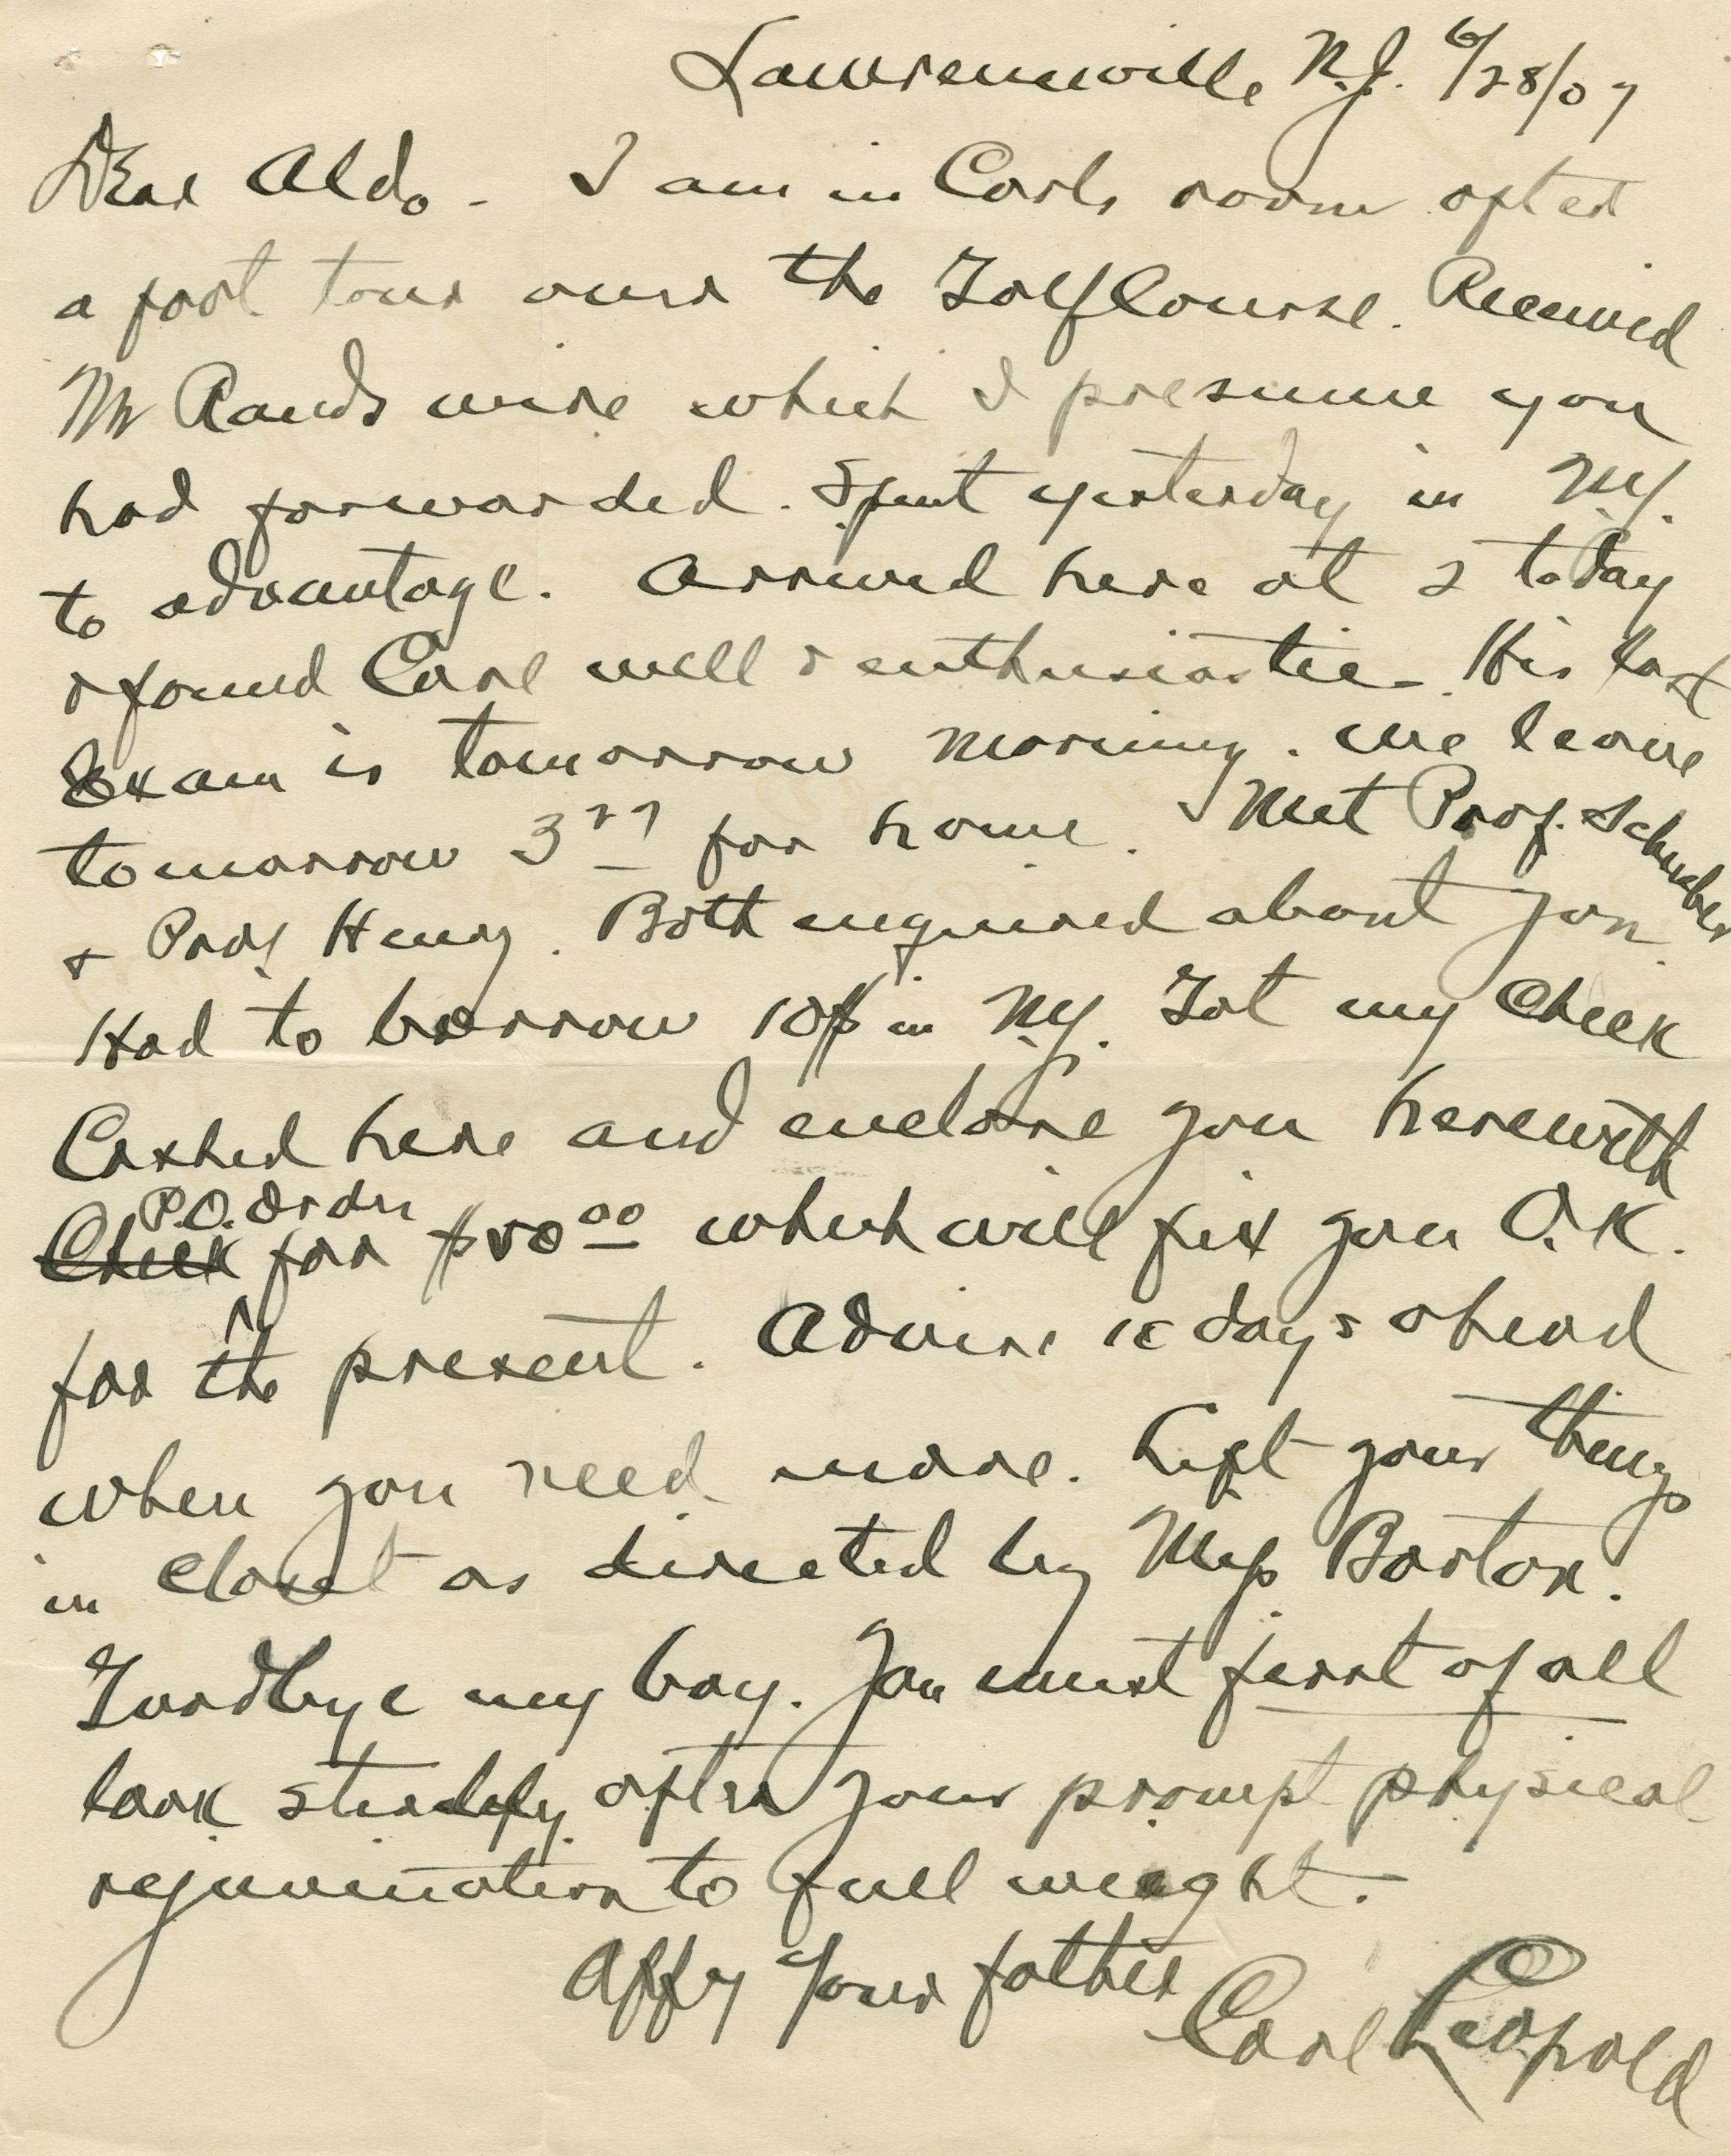 Lawrenceville N.J. 6/28/07
Dear Aldo - I am in Carls room after
a foot tour over the Golf Course. Received
Mr Rands wire which I presume you
had forwarded. Spent yesterday in N.Y.
to advantage. Arrived here at 2 today
& found Carl well & enthusiastic. His last
Exam is tomorrow morning. We leave
tomorrow 3 27 for home. Met Prof.
& Prof Henry. Both enquired about you.
Had to borrow 10$ in N.Y. Got my Check
Cashed here and enclose you herewith
Check P.O. Order for $50 00 which will fix you O.K.
for the present. Advise 10 days ahead
when you need more. Left your things
in closet as directed by Miss Barton.
Goodbye my boy. You must first of all
look steadily after your prompt physical
rejuvination to full weight.
Affy Your father
Carl Leopold